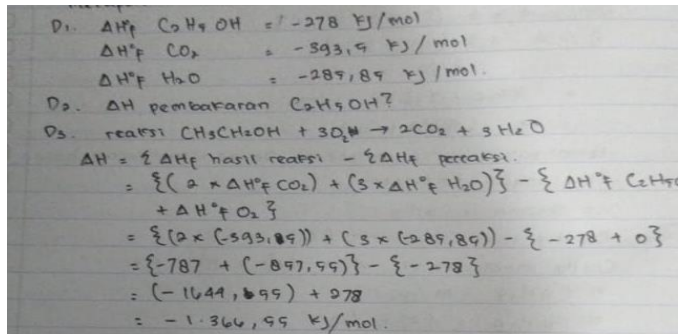 D1. ΔH°f C2H5OH = -278 kJ/mol
ΔH°f CO2 = -393,5 kJ/mol
ΔH°f H2O = -285,85 kJ/mol.
D2. ΔH pembakaran C2H5OH?
D3. reaksi CH3CH2OH + 3O2 → 2CO2 + 3H2O
ΔH = Σ ΔHf hasil reaksi - Σ ΔHf pereaksi.
= {(2 x ΔH°f CO2) + (3 x ΔH°f H2O)} - { ΔH°f C2H5O
+ ΔH°f O2 }
= {(2 x (-393,5)) + (3 x (-285,85)) - { -278 + 0}
= {-787 + (-857,55)} - { -278}
= (-1644,55) + 278
= -1.366,55 kJ/mol.